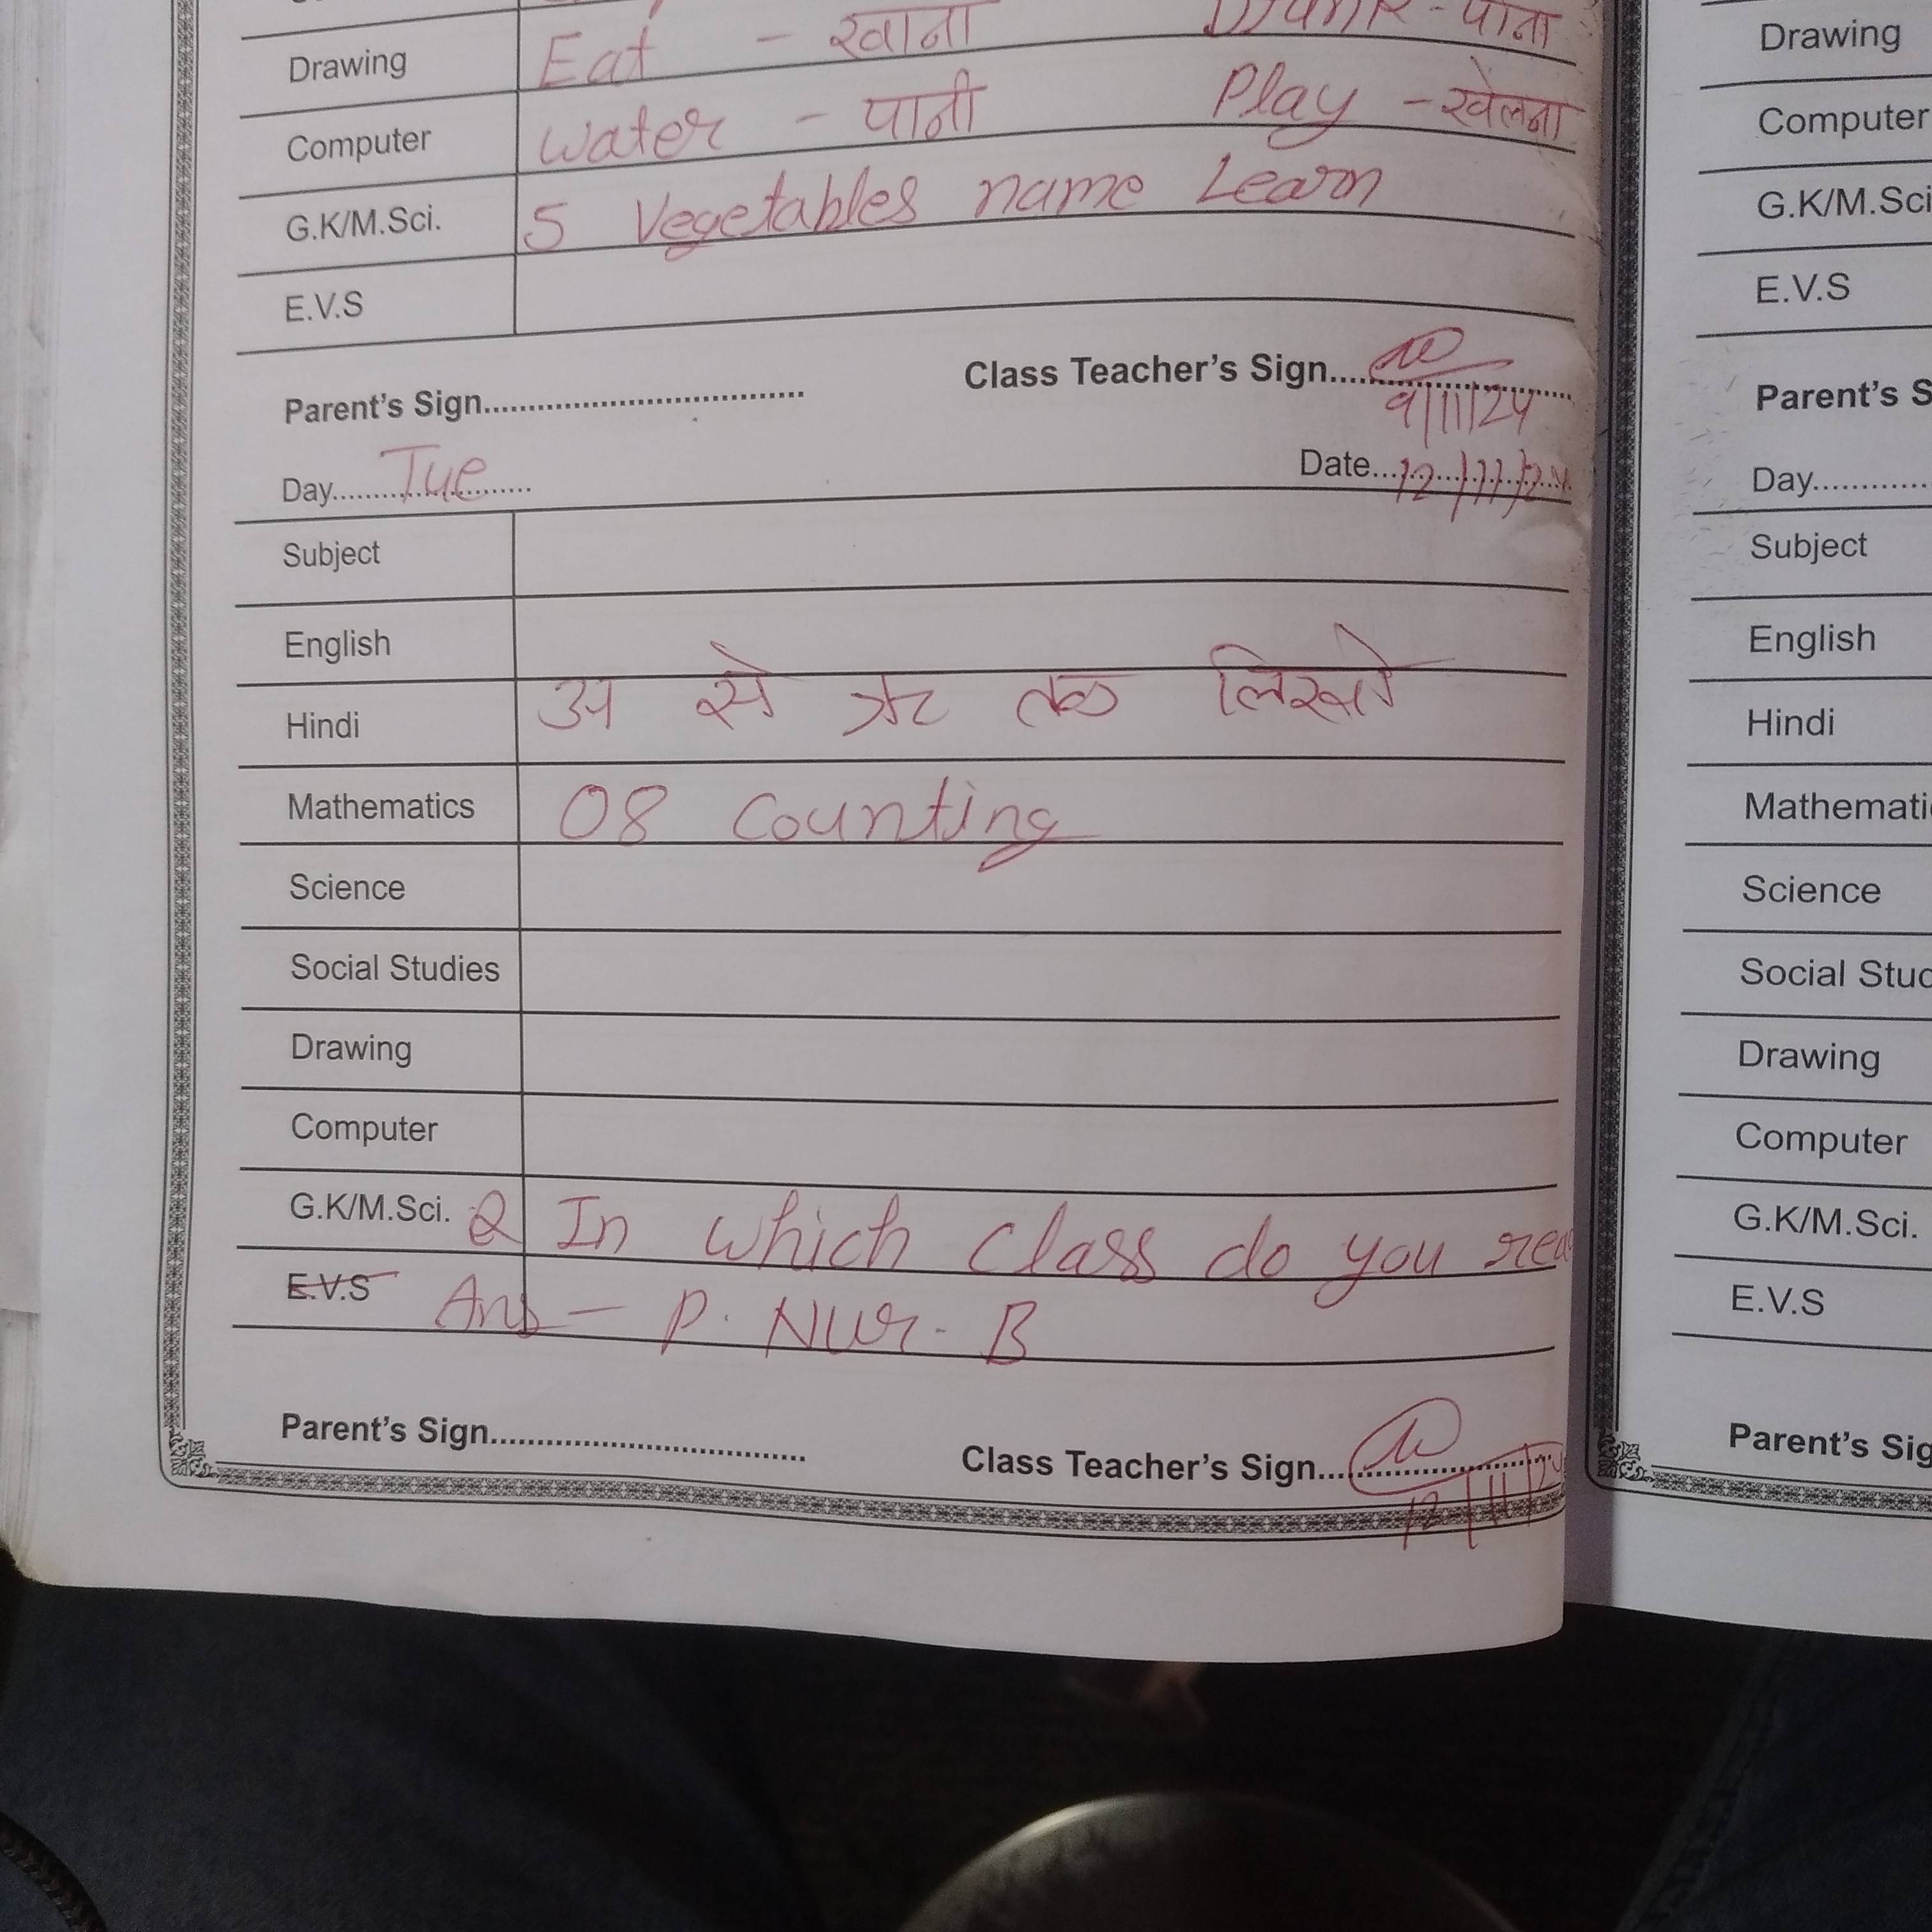 Drawing Eat - खाना Drink - पीना
Computer water - पानी Play - खेलना
G.K/M.Sci. 5 Vegetables name Learn
E.V.S
Parent's Sign................................ Class Teacher's Sign..........................
9/11/24
Day.... Tue .... Date... 12/11/24
Subject
English
Hindi अ से ऋ तक लिखो
Mathematics 08 Counting
Science
Social Studies
Drawing
Computer
G.K/M.Sci. Q In which class do you
E.V.S Ans - P. Nur. B
Parent's Sign................................ Class Teacher's Sign..........................
12/11/24
Drawing
Computer
G.K/M.Sci
E.V.S
Parent's S
Day............
Subject
English
Hindi
Mathemati
Science
Social Stud
Drawing
Computer
G.K/M.Sci.
E.V.S
Parent's Sig